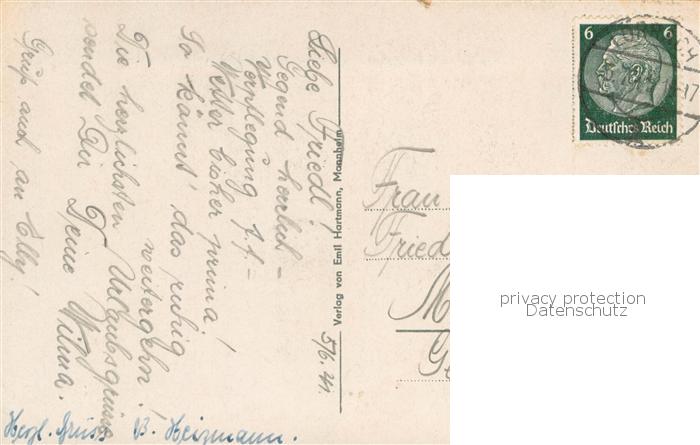 5/6. 41.
Liebe Friedl!
Gegend herrlich –
Verpflegung f.f. –
Wetter bisher prima!
So könnt' das ruhig
weitergehn!
Die herzlichsten Urlaubsgrüsse
sendet Dir
Deine Wilma.
Gruß auch an Elly!
Herzl. Gruss B. Heizmann.
Verlag von Emil Hartmann, Mannheim
6 6
Deutsches Reich
Frau
Fried
M
privacy protection
Datenschutz